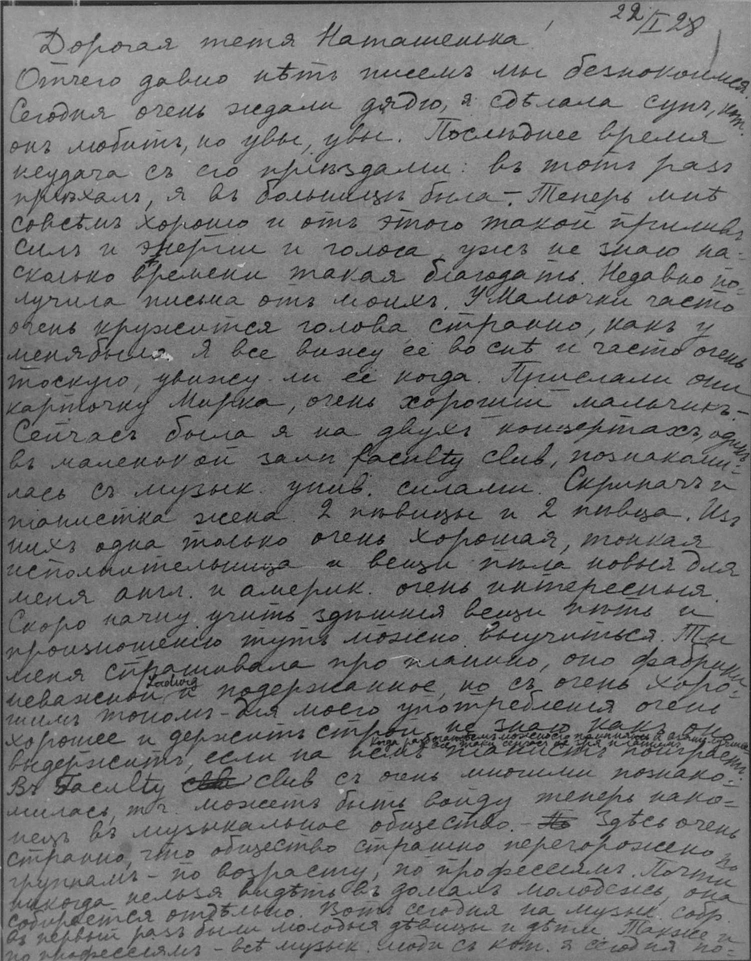 22/I 28
Дорогая тетя Наташенька!
Отчего давно нѣтъ писемъ мы безпокоимся.
Сегодня очень ждали дядю, я сдѣлала супъ, кот.
онъ любитъ, но увы, увы. Послѣднее время
неудача съ его приѣздами: въ тотъ разъ
приѣхалъ, я въ больницѣ была. Теперь мнѣ
совсѣмъ хорошо и отъ этого такой приливъ
силъ и энергии и голоса, ужъ не знаю на-
сколько времени такая благодать. Недавно по-
лучила письма отъ моихъ. У Мамочки часто
очень кружится голова странно, какъ у
меня была. Я все вижу ее во снѣ и часто очень
тоскую, увижу ли ее когда. Прислали они
карточку Мирка, очень хороший мальчикъ.
Сейчасъ была я на двухъ концертахъ, одинъ
въ маленькой залѣ faculty club, познакоми-
лась съ музык. унив. силами. Скрипачъ и
пианистка жена. 2 пѣвицы и 2 пѣвца. Изъ
нихъ одна только очень хорошая, тонкая
исполнительница и вещи пѣла новыя для
меня англ. и америк. очень интересныя.
Скоро начну учить здѣшния вещи пѣть и
произношению тутъ можно выучиться. Ты
меня спрашивала про пианино, оно фабрики
неважной Ludwig и подержанное, но съ очень хоро-
шимъ тономъ - для моего употребления очень
хорошее и держитъ строй, не знаю какъ оно
выдержитъ, если на немъ пианистъ поиграетъ.
Въ Faculty club съ очень многими познако-
милась, т.ч. можетъ быть войду теперь нако-
нецъ въ музыкальное общество. - Здѣсь очень
странно, что общество страшно перегорожено по
группамъ - по возрасту, по профессиямъ. Почти
никогда нельзя видѣть въ домахъ молодежь, она
собирается отдѣльно. Вотъ сегодня на музык. собр.
въ первый разъ были молодыя дѣвицы и дѣти. Также и
по профессиямъ - всѣ музык. люди съ кот. я сегодня по-